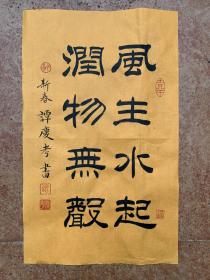 風生水起
潤物無聲
新春譚慶孝書